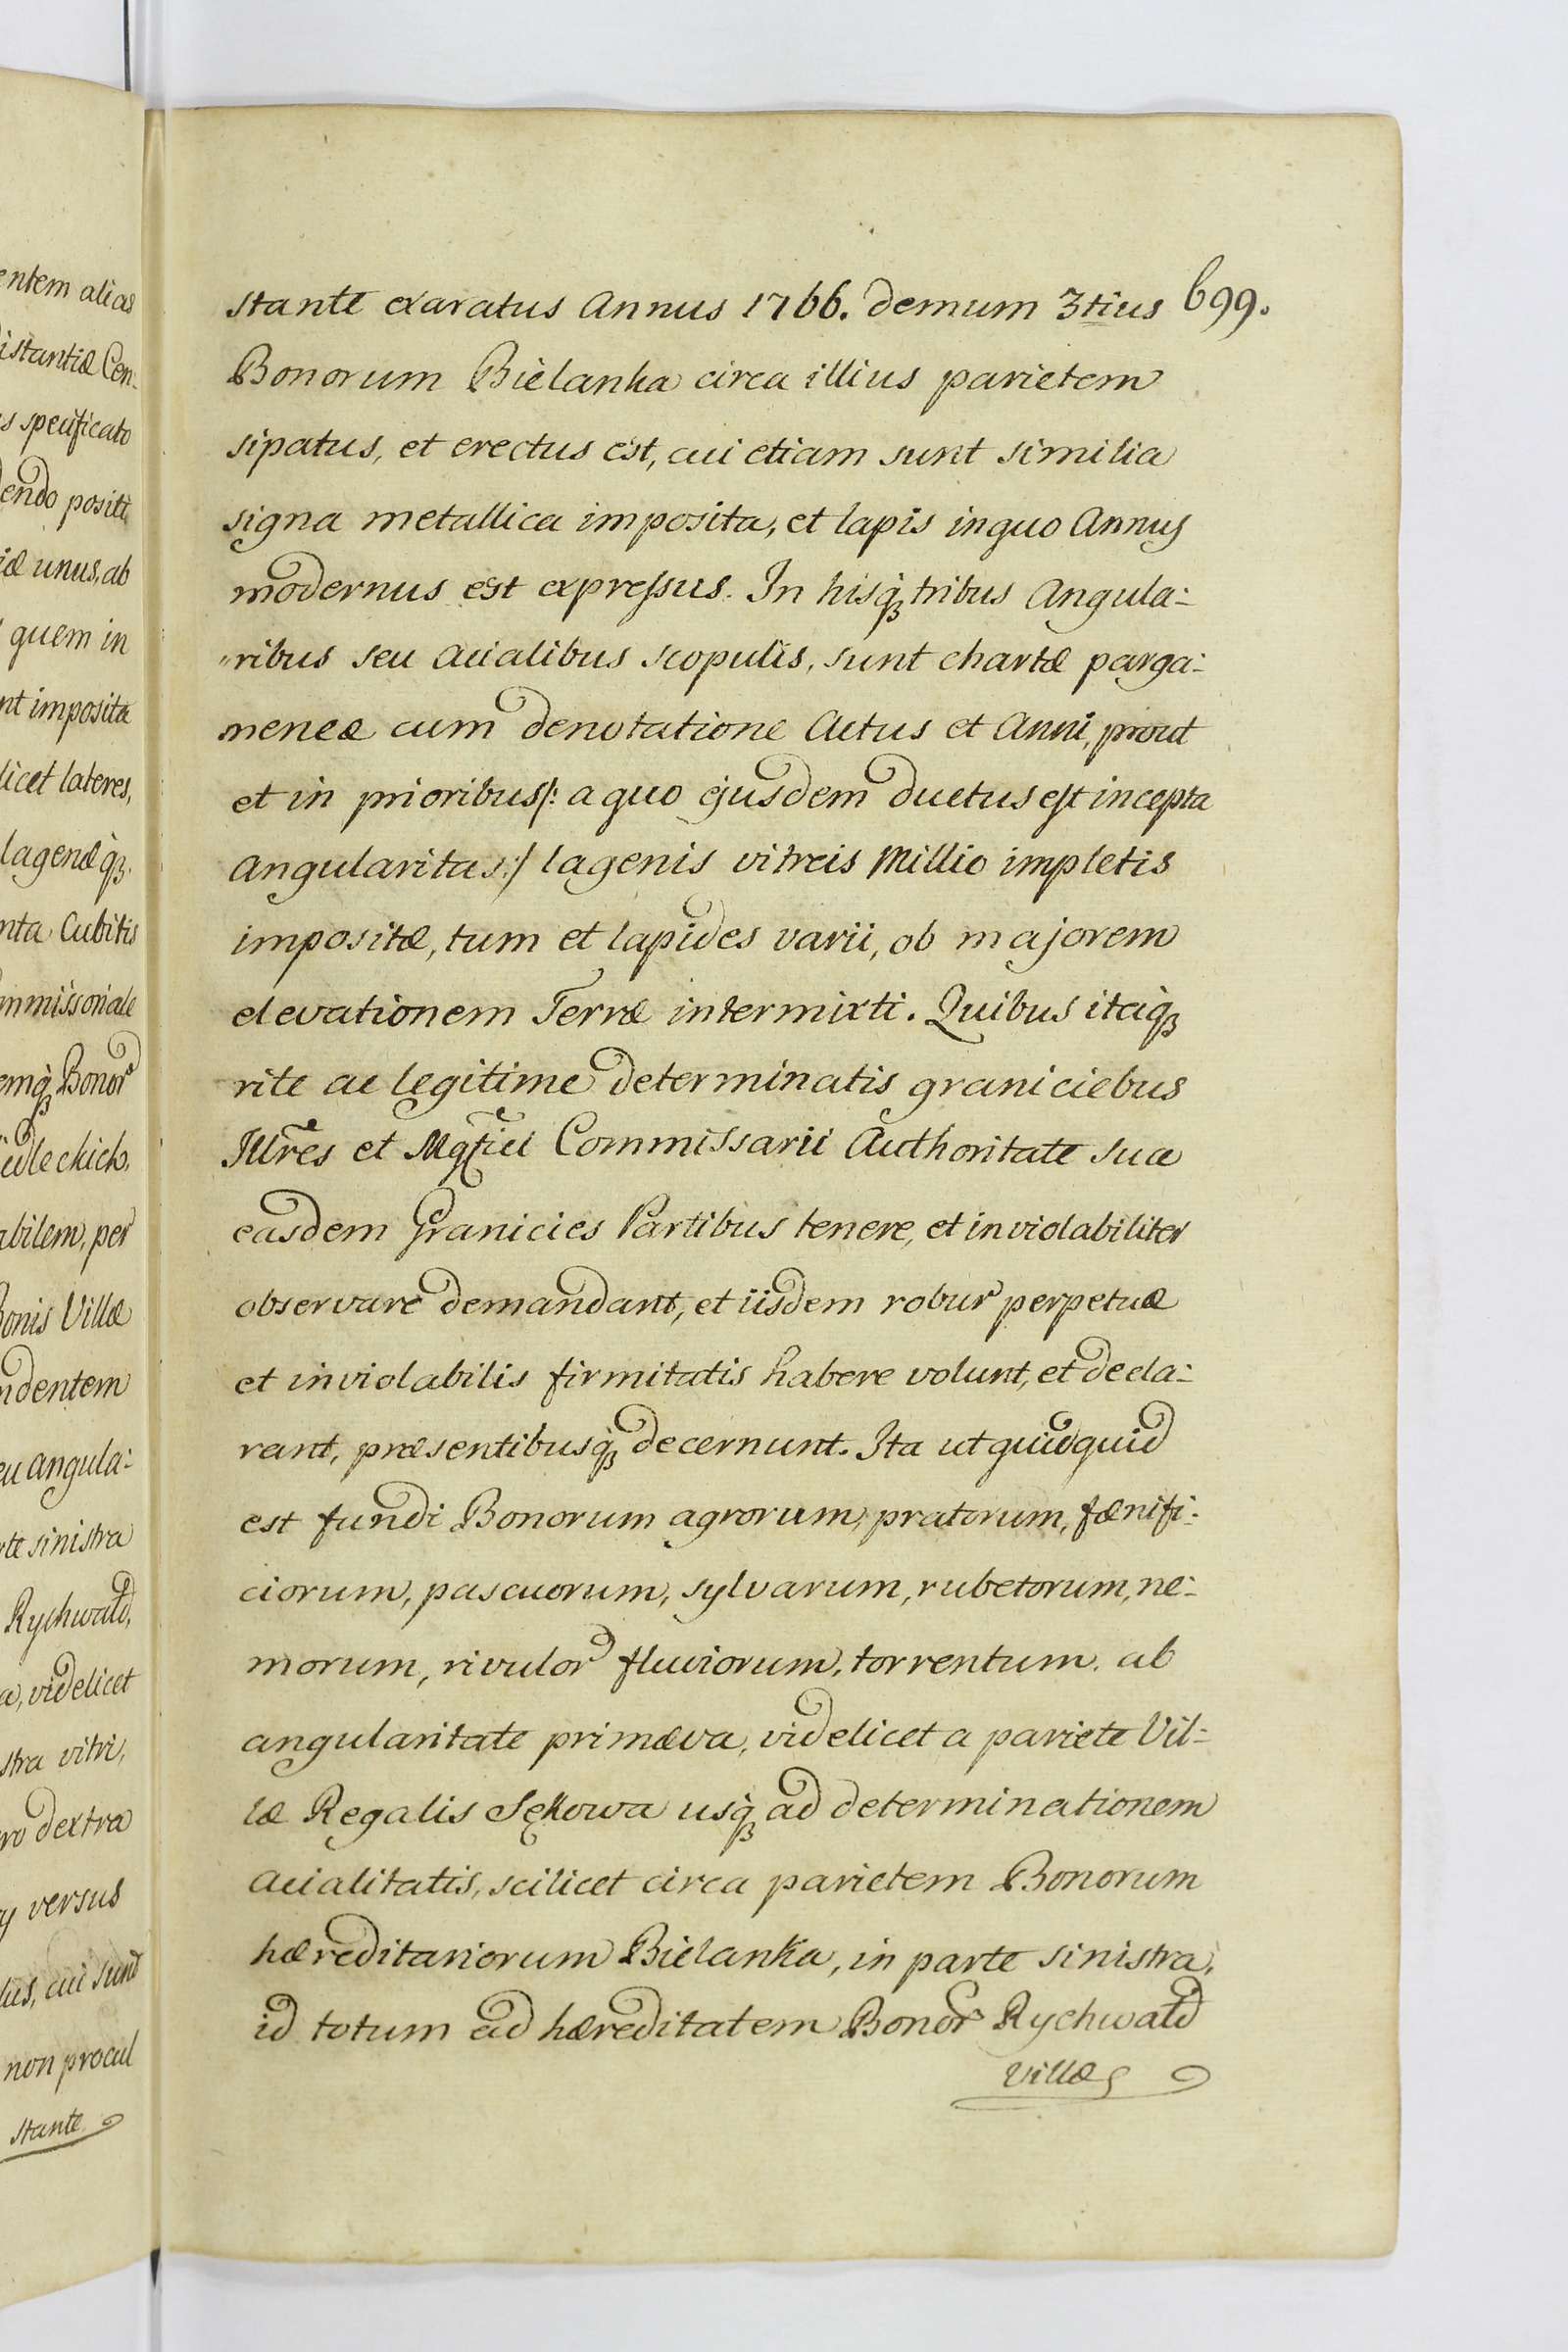 entem alias
istantiæ Cen-
s specificato
dendo positi
iæ unus, ab
quem in
nt imposita
licet lateres,
lagenæq́ꝫ
nta Cubitis
mmissoriale
emq́ꝫ Bonor
abilem, per
Bonis Villæ
ndentem
eu angula:
rte sinistra
Rychwald,
a, videlicet
stra vitri,
ro dextra
y versus
lus, cui sunt
non procul
stante
stante exaratus Annus 1766. demum 3tius 699.
Bonorum Bielanka circa illius parietem
sipatus, et erectus est, cui etiam sunt similia
signa metallica imposita, et lapis in quo Annus
modernus est expressus. In hisq́ꝫ tribus Angula:
"ribus seu acialibus scopulis, sunt chartæ parga:
meneæ cum denotatione Actus et Anni, prout
et in prioribus /: a quo ejusdem ductus est incepta
angularitas :/ lagenis vitreis Millio impletis
impositæ, tum et lapides varii, ob majorem
elevationem Terræ intermixti. Quibus itaq́ꝫ
rite ac legitime determinatis graniciebus
Illres et Mgfici Commissarii Authoritate sua
easdem Granicies Partibus tenere, et inviolabiliter
observare demandant, et iisdem robur perpetuæ
et inviolabilis firmitatis habere volunt, et decla:
rant, præsentibusq́ꝫ decernunt. Ita ut quidquid
est fundi Bonorum agrorum, pratorum, fœnifi:
ciorum, pascuorum, sylvarum, rubetorum, ne:
morum, rivulor fluviorum, torrentum. ab
angularitate primæva, videlicet a pariete Vil=
læ Regalis Sękowa usq́ꝫ ad determinationem
acialitatis, scilicet circa parietem Bonorum
hæreditariorum Bielanka, in parte sinistra,
id totum ad hæreditatem Bonor Rychwald
villæ